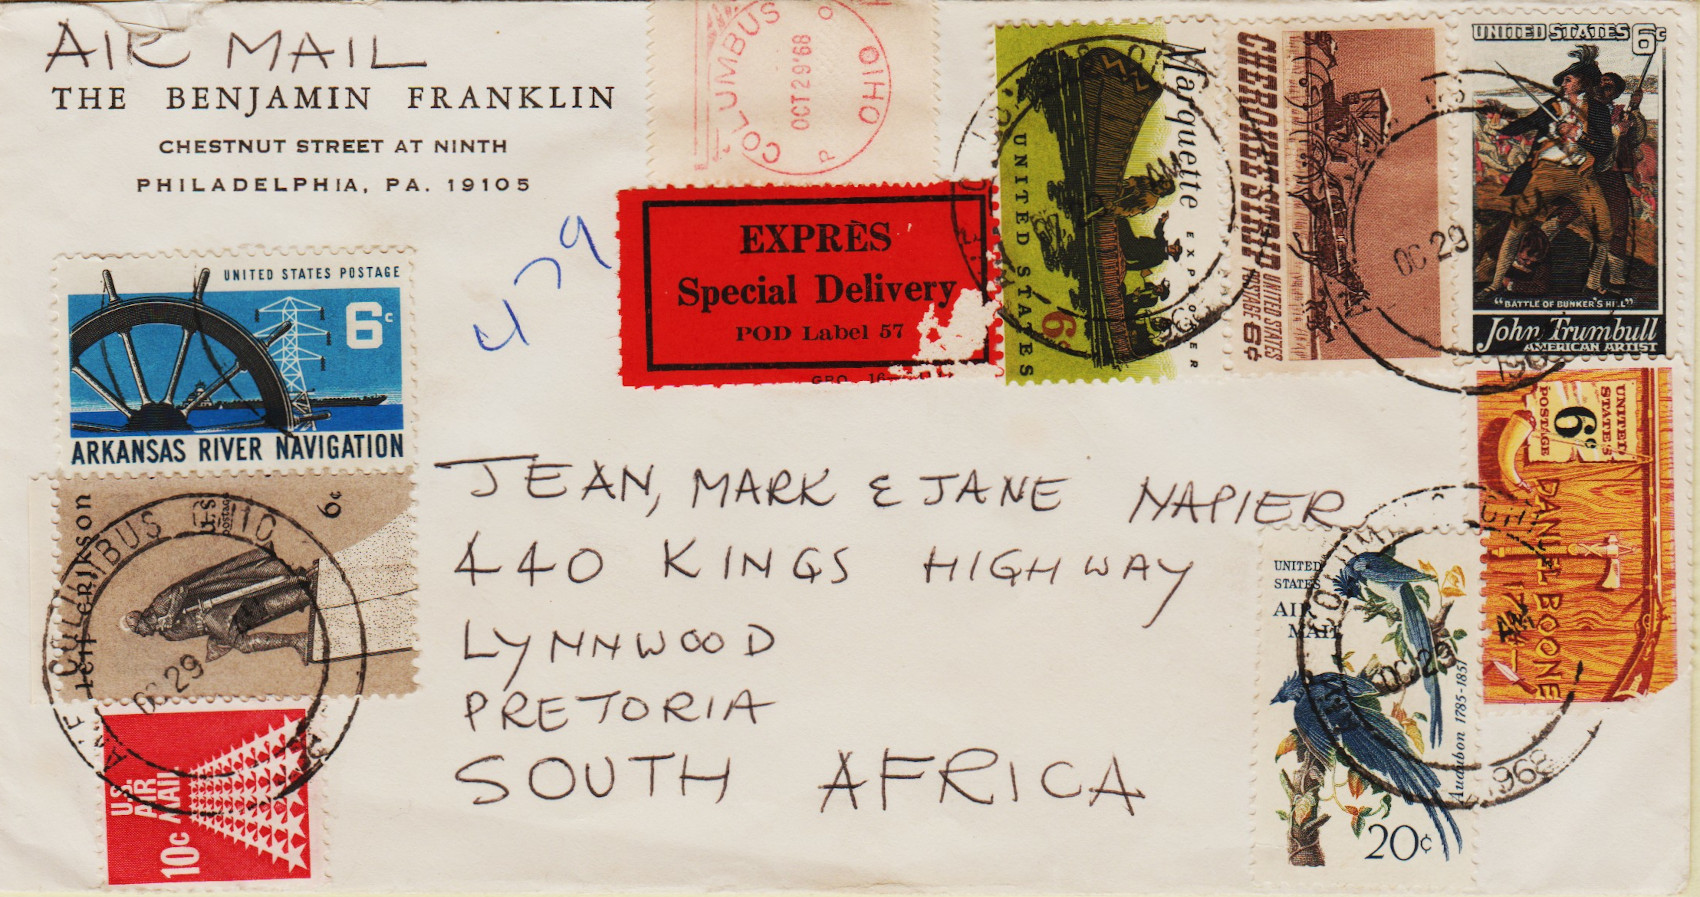 AIR MAIL
THE BENJAMIN FRANKLIN
CHESTNUT STREET AT NINTH
PHILADELPHIA, PA. 19105
COLUMBUS OHIO
OCT 29 '68
P O
479
EXPRÈS
Special Delivery
POD Label 57
GPO 16
Marquette
EXPLORER
UNITED STATES
6c
CHEROKEE STRIP
UNITED STATES
POSTAGE 6¢
OC 29
1968
UNITED STATES 6c
"BATTLE OF BUNKER'S HILL"
John Trumbull
AMERICAN ARTIST
UNITED STATES POSTAGE
6c
ARKANSAS RIVER NAVIGATION
leif erikson
U.S. postage
6c
COLUMBUS OHIO
OC 29
U.S.
AIR
MAIL
10c
UNITED
STATES
POSTAGE
6c
DANIEL BOONE
1734
UNITED
STATES
AIR
MAIL
Audubon 1785-1851
20c
OC 29
1968
JEAN, MARK & JANE NAPIER
440 KINGS HIGHWAY
LYNNWOOD
PRETORIA
SOUTH AFRICA